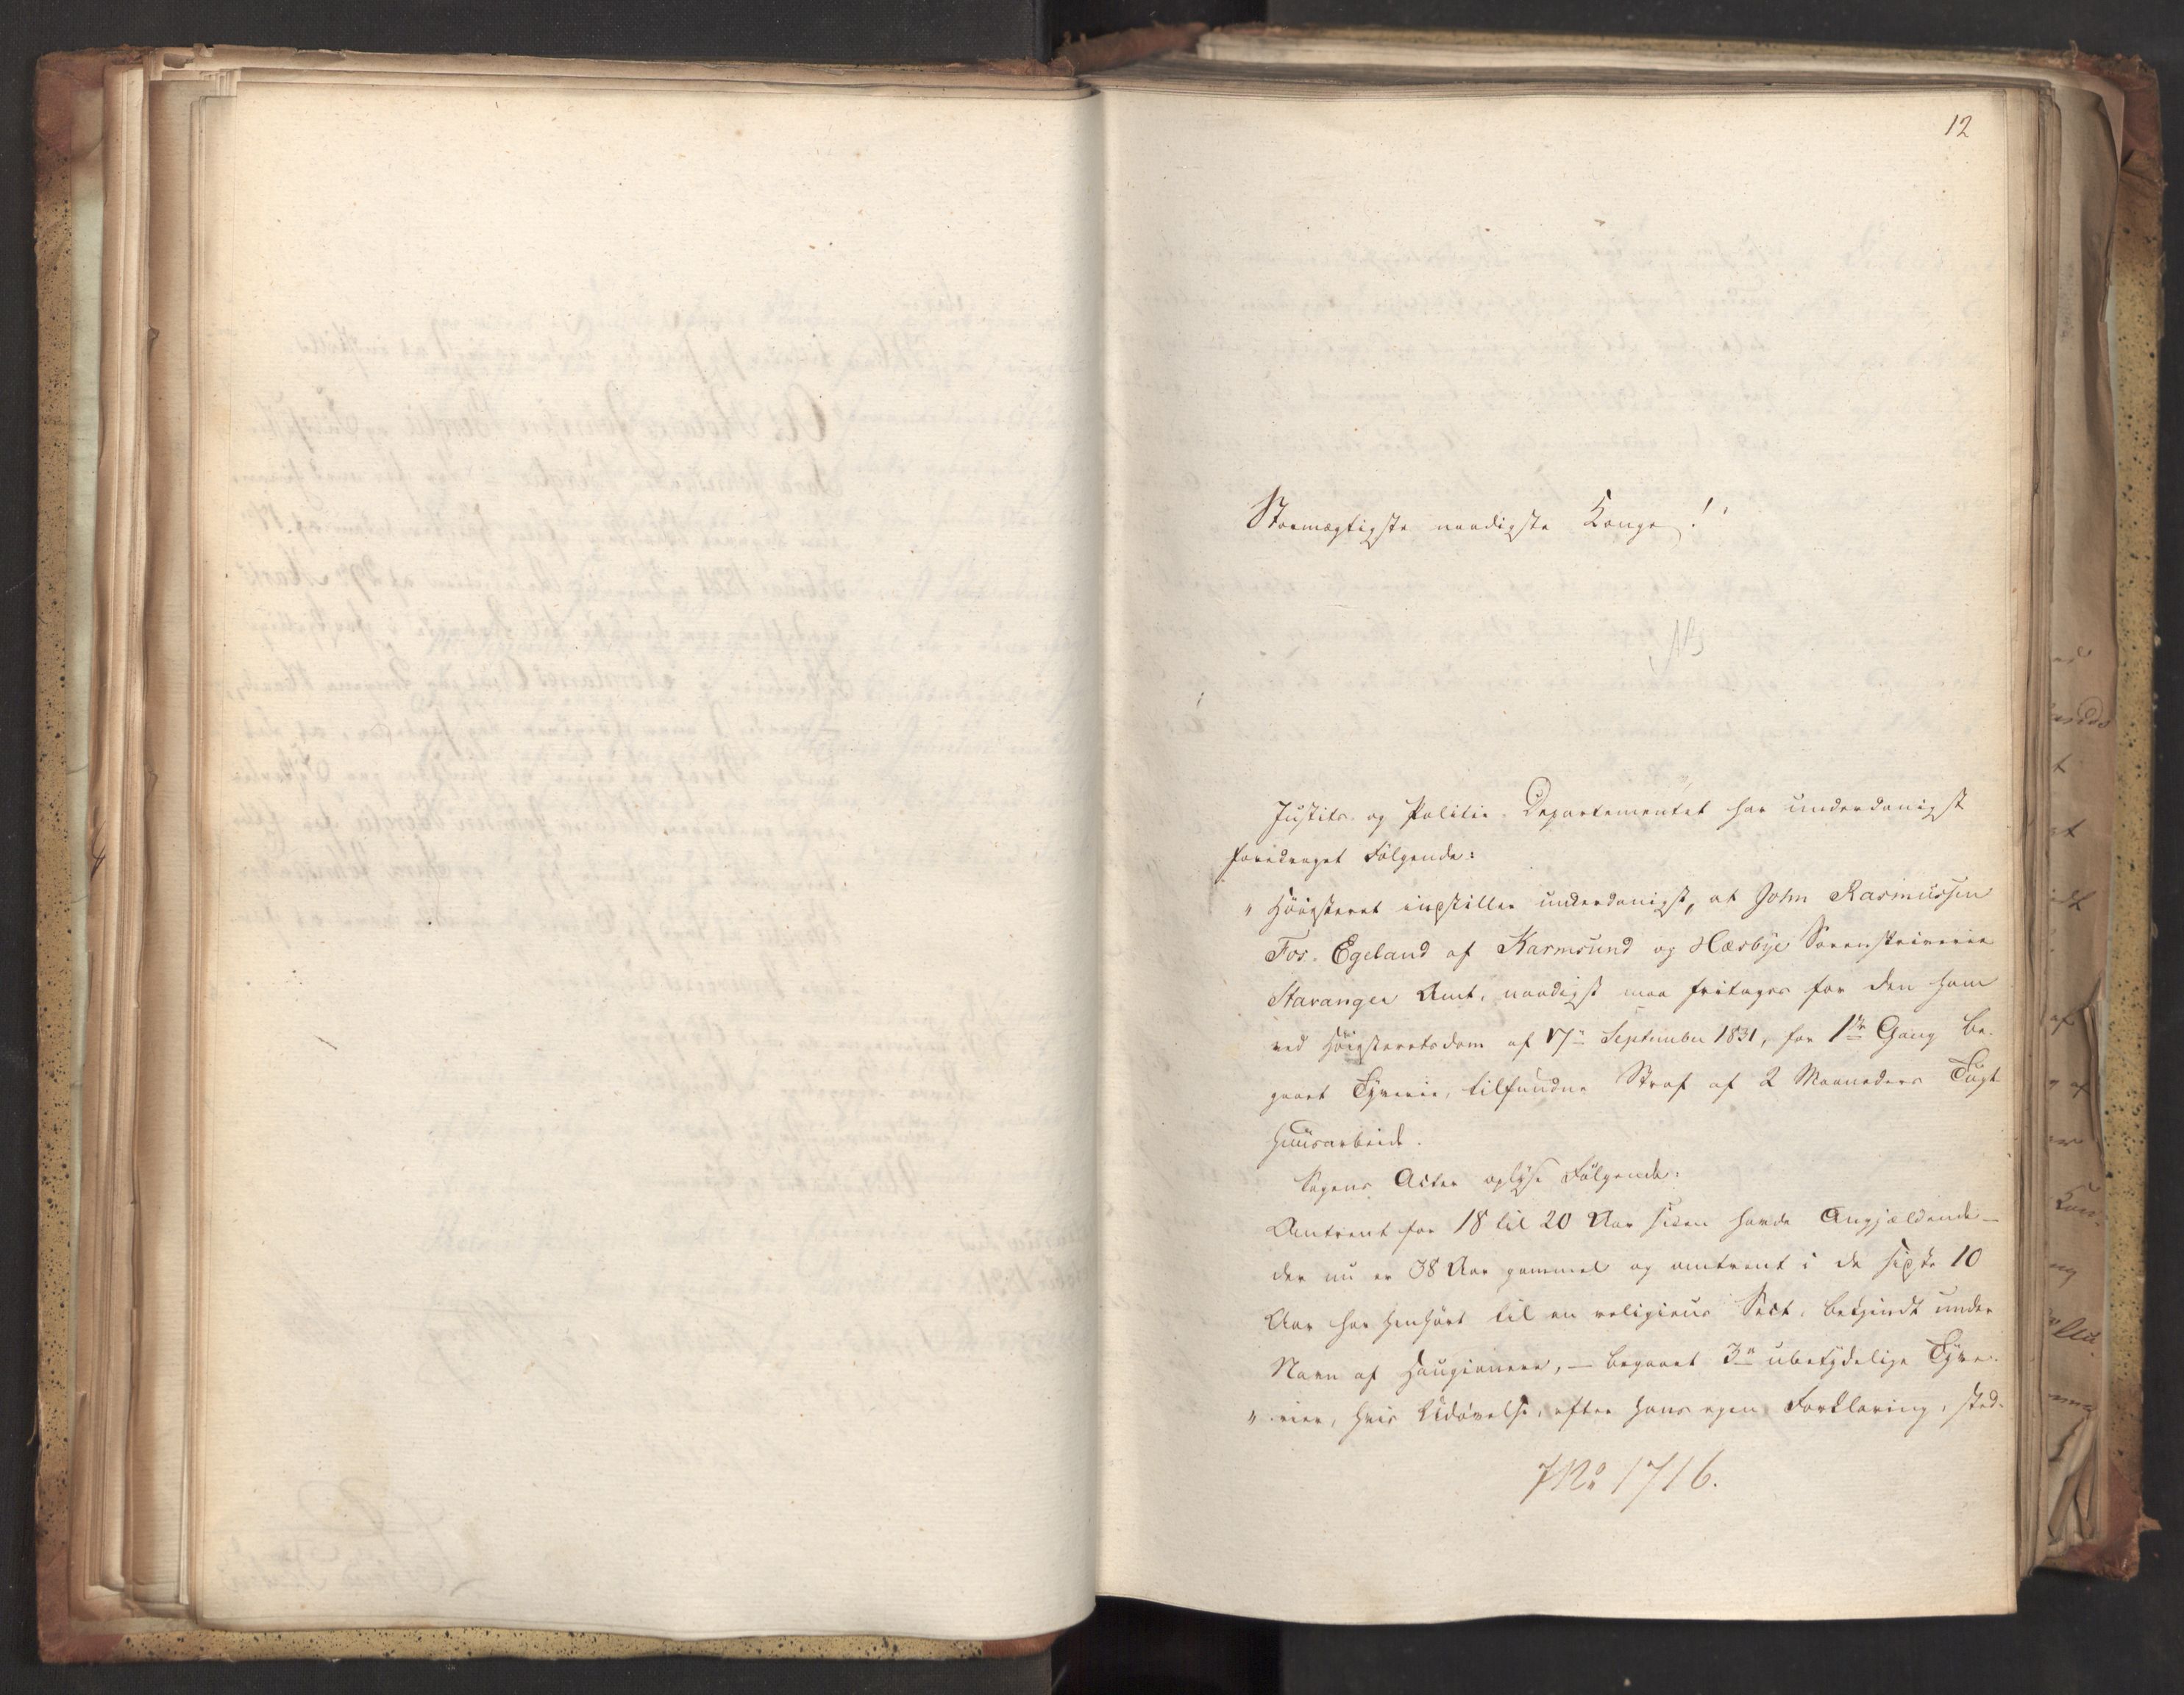 12
Stormægtigste naadigste Konge!
Justits- og Politie-Departementet har underdanigst
foredraget Følgende:
" Høiesteret instiller underdanigst, at John Rasmussen
Fos-Egeland af Karmsund og Hæsbye Sorenskriverie
Stavanger Amt, naadigst maa fritages for den ham
ved Høiesteretsdom af 17de September 1831, for 1ste Gang be-
gaaet Tyverie, tilfundne Straf af 2 Maaneders Tugt
huusarbeide.
Sagens Acter oplyse Følgende:
Omtrent for 18 til 20 Aar siden havde Angjældende -
der nu er 38 Aar gammel og omtrent i de sidste 10
Aar har henhørt til en religieus Sect, bekjendt under
Navn af Haugianere, - begaaet 3de ubetydelige Tyve-
" rier, hvis Udøvelse, efter hans egen Forklaring, sted-
No 1716.